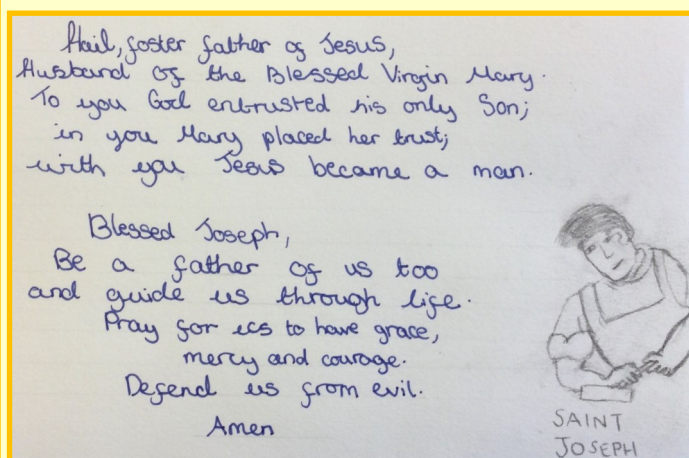 Hail, foster father of Jesus,
Husband of the Blessed Virgin Mary.
To you God entrusted his only Son;
in you Mary placed her trust;
with you Jesus became a man.
Blessed Joseph,
Be a father of us too
and guide us through life.
Pray for us to have grace,
mercy and courage.
Defend us from evil.
Amen
SAINT
JOSEPH